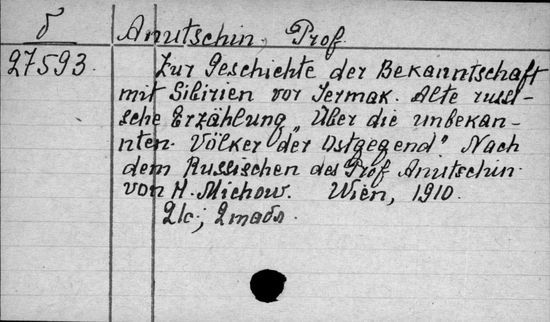 б
Anutschin, Prof.
27593.
Zur Geschichte der Bekanntschaft
mit Sibirien vor Jermak. Alte russi-
sche Erzählung „Über die unbekan-
nten Völker der Ostgegend". Nach
dem Russischen des Prof. Anutschin
von H. Michow. Wien, 1910.
21c; 2табл.